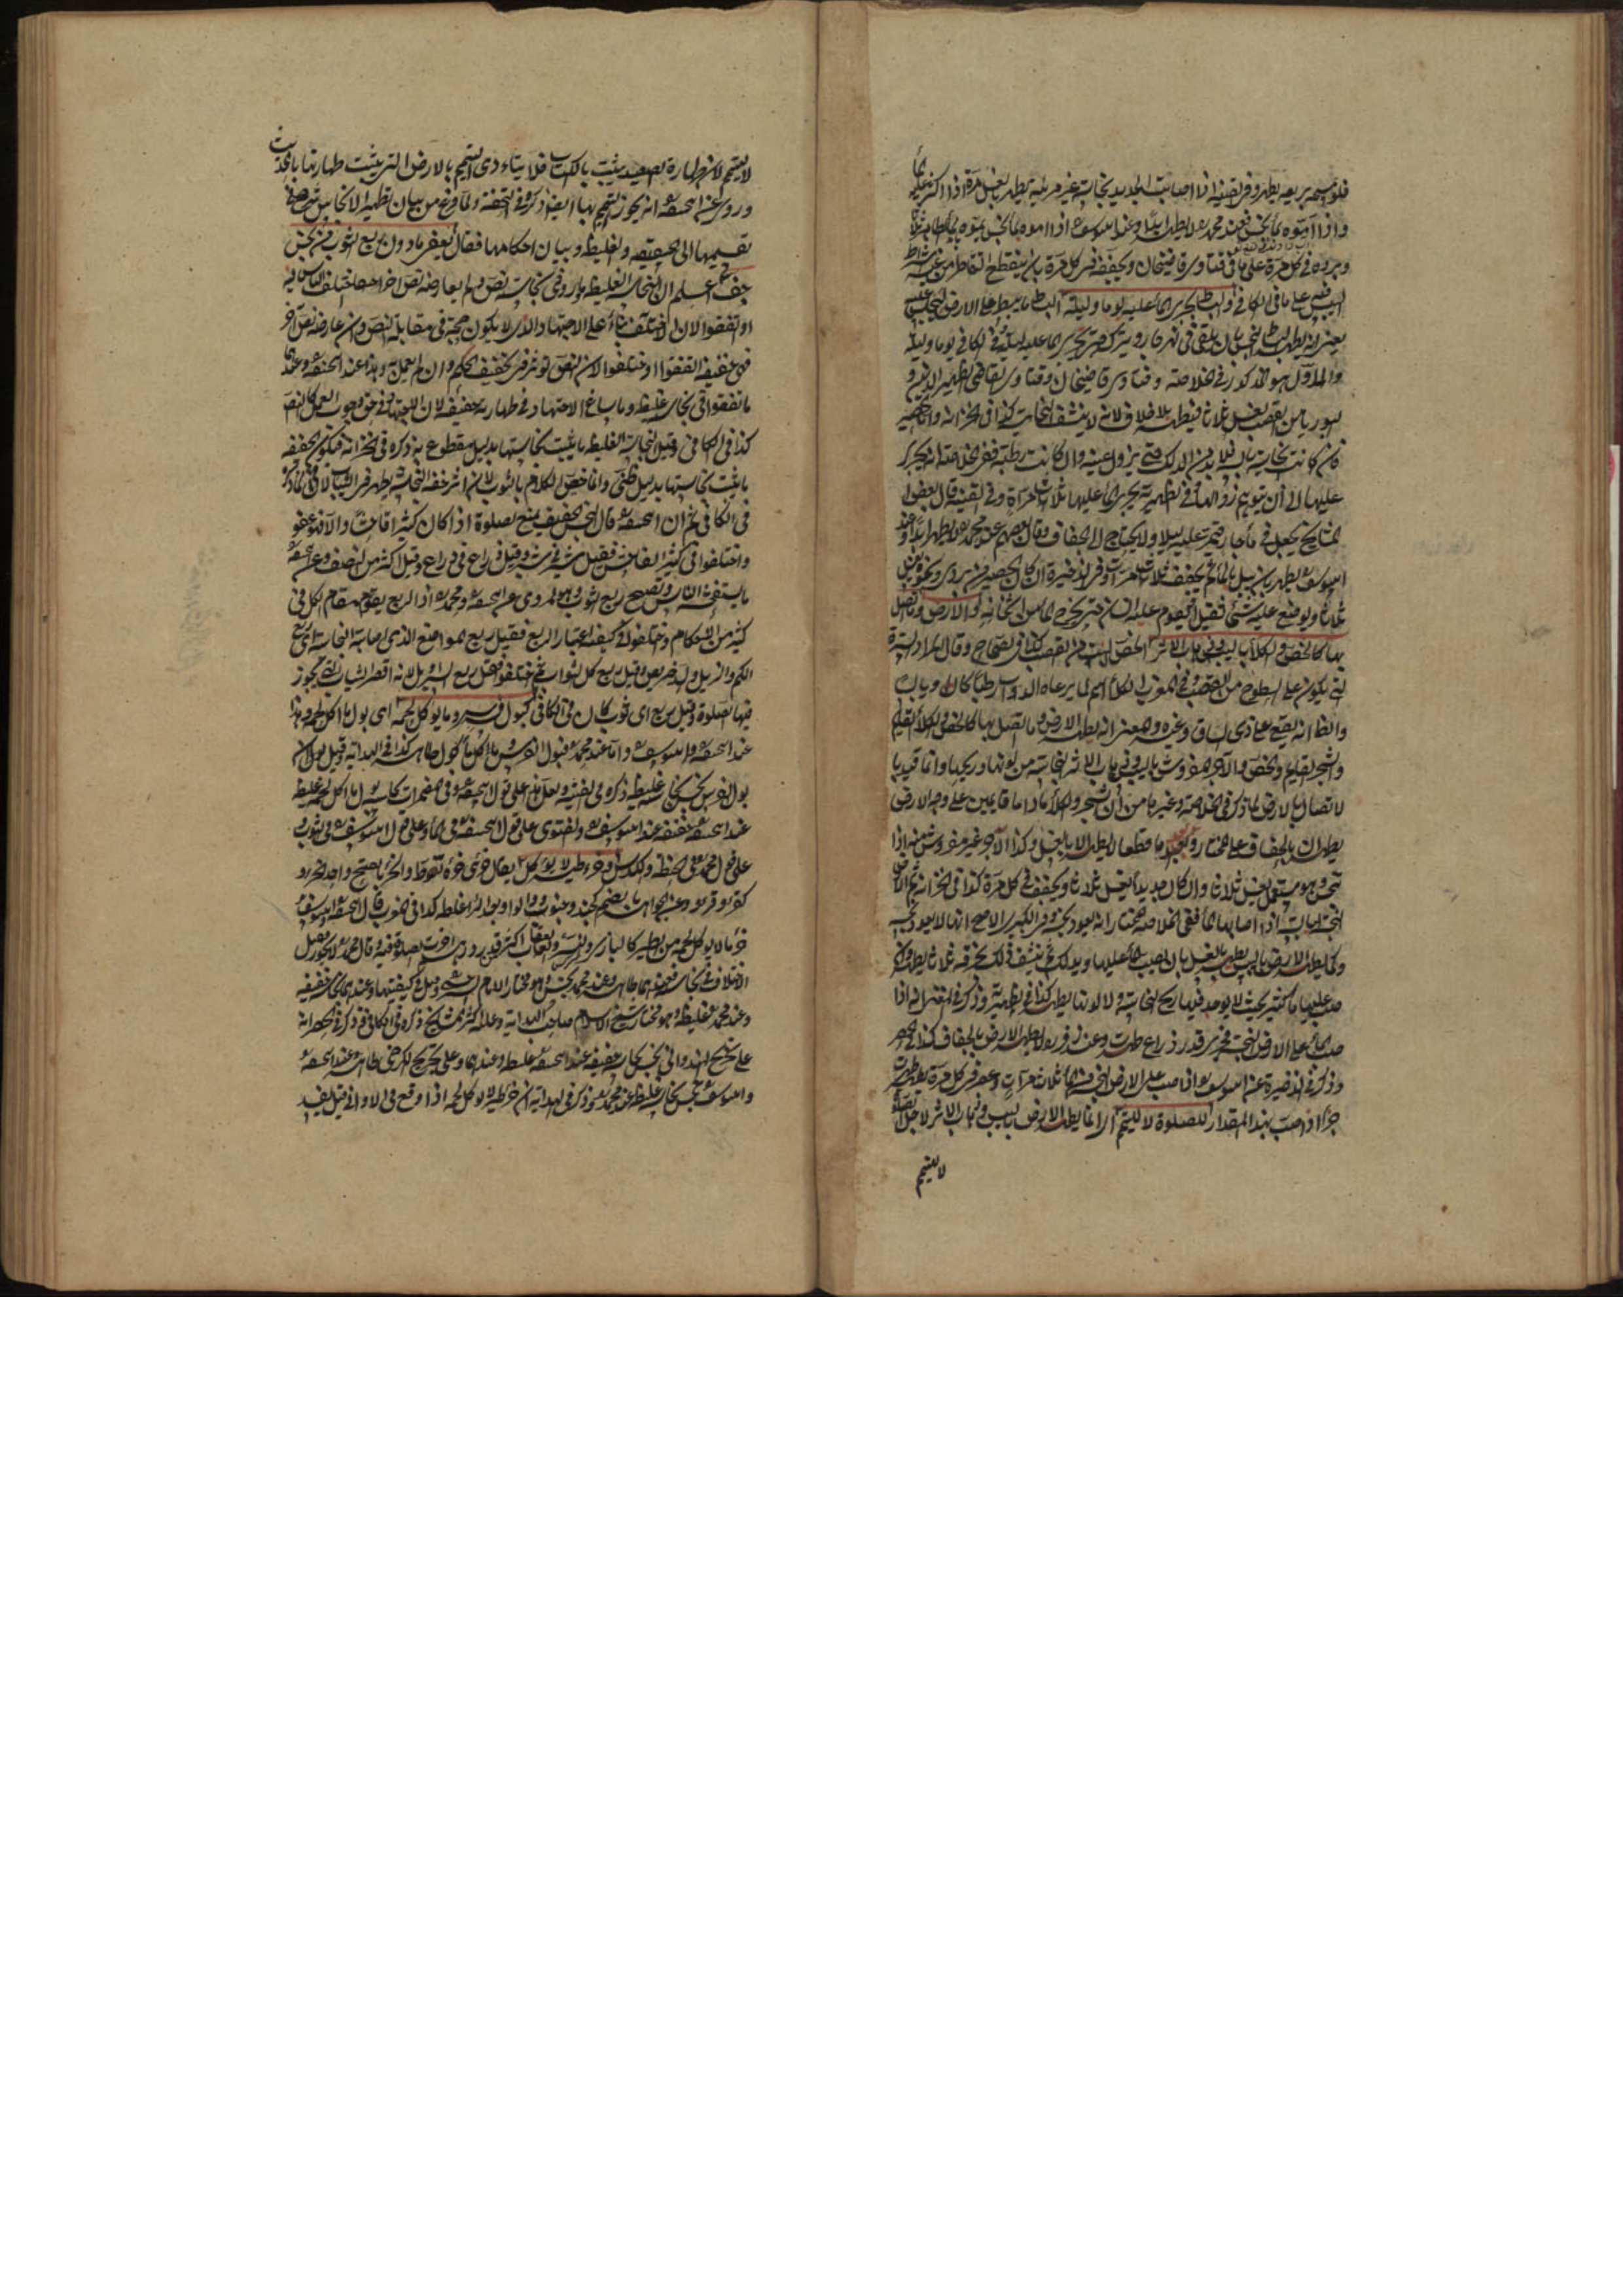 فلو مسحه بريقه يطهر وفي القنية اذا اصابت الحديد نجاسة غير مرئية يطهر بغسل مرة اذا اكثر عليه الماء
واذا اموّه بماء نجس فعند محمد لا يطهر ابدا وعند ابي يوسف اذا اموه بماء نجس يموه بماء طاهر ثلاثا
ويبرده في كل مرة على ما في فتاوى قاضيخان ويجففه في كل مرة بان ينقطع التقاطر من غير اشتراط
اليبس على ما في الكافي والبساط يجري الماء عليه يوما وليلة البساط ما يبسط على الارض
يعني انه يطهر البساط النجس بان يلقى في نهر جار ويترك حتى يجري الماء عليه ليلة وفي الكافي يوما وليلة
والاول هو المذكور في الخلاصة وفتاوى قاضيخان وفتاوى القاضي ظهير الدين
بوريا من القصب يغسل ثلاثا فيطهر بلا خلاف لانه لا ينشف النجاسة كذا في الخزانة واما الحصير
فان كانت نجاسة يابسة فلا بد من الدلك حتى يزول عينه وان كانت رطبة ففي الخلاصة انه يجري
عليها الى ان يتوهم زوالها وفي الظهيرية يجري الماء عليها ثلاث مرات وفي القنية قال بعض
المشايخ يجعل في ماء جار فيمر عليه ليلا ولا يحتاج الى الجفاف وقال بعضهم عند محمد لا يطهر ابدا وعند
ابي يوسف يطهر بان يبل بالماء ثم يجفف ثلاث مرات وفي الذخيرة ان كان الحصير من بردي ونحوه يغسل
ثلاثا ويوضع عليه شيء ثقيل او يقوم عليه انسان حتى يخرج الماء من اثخانه والارض وما يتصل
بها كالخص والكلأ باليبس وذهاب الاثر الخص البيت من القصب كذا في الصحاح وقال
التي يكون على السطوح من القصب وفي المغرب الكلأ اسم لما يرعاه الدواب رطبا كان او يابسا
والظاهر انه يقع على ذي الساق وغيره والمعنى انه يطهر الارض وما يتصل بها كالخص والكلأ القائم
والشجر القائم والخص والآجر المفروش باليبس وذهاب الاثر النجاسة من لونها وريحها وانما قيد بها
لاتصال بالارض لما ذكر في الخلاصة وغيرها من ان الشجر والكلأ ما داما قائمين على وجه الارض
يطهران بالجفاف على المختار وبعد ما قطعا لا يطهر الا بالغسل وكذا الآجر غير مفروش فانه اذا
تنجس وهو مستعمل يغسل ثلاثا وان كان جديدا يغسل ثلاثا ويجفف في كل مرة كذا في الخزانة ثم الارض
النجسة اذا يبست ثم اصابها الماء ففي الخلاصة المختار انه يعود نجسا وفي الكبير الاصح انها لا يعود نجسة
وكما يطهر الارض باليبس يطهر بالغسل بان يصب الماء عليها ويدلك ثم ينشف ذلك بخرقة ثلاثا يطهر ولو
صب عليها ماء كثير بحيث لا يوجد فيها ريح النجاسة ولا لونها يطهر كذا في الظهيرية وذكر في انه اذا
صب الماء على الارض النجسة فجرى قدر ذراع طهرت وعند زفر لا يطهر الارض بالجفاف كذا في
وذكر في الذخيرة عن ابي يوسف اذا صب على الارض النجسة الماء ثلاث مرات وعصر في كل مرة طهرت
اذا صب بهذا المقدار للصلوة لا للتيمم اي انما يطهر الارض باليبس وذهاب الاثر لاجل الصلوة
لا للتيمم
لا للتيمم لان طهارة الصعيد يثبت بالكتاب فلا يتادى التيمم بالارض التي يثبت طهارتها بالحديث
وروي عن ابي حنيفة انه يجوز التيمم بها ايضا ذكره في التحفة ولما فرغ من بيان تطهير الانجاس شرع في
تقسيمها الى الخفيفة والغليظة وبيان احكامها فقال يعفى ما دون ربع الثوب من نجس
خف اعلم ان النجاسة الغليظة ما ورد في نجاسته نص ولم يعارضه نص آخر اختلف الناس فيه
او اتفقوا لان الاختلاف بناء على الاجتهاد والذي لا يكون حجة في مقابلة النص وان عارضه نص آخر
فهي خفيفة اتفقوا او اختلفوا لان النص يورث تخفيف الحكم وان لم يعمل به وهذا عند ابي حنيفة وعندهما
ما اتفقوا في نجاسته غليظة وما ساغ الاجتهاد في طهارته خفيفة لان الاجتهاد في حق وجوب العمل كالنص
كذا في الكافي وقيل النجاسة الغليظة ما يثبت نجاستها بدليل مقطوع به ذكره في الخزانة فيكون الخفيفة
ما يثبت نجاستها بدليل ظني وانما خص الكلام بالثوب لان اثر خفة النجاسة يظهر في الثياب لا في الماء ذكره
في الكافي ثم ان ابا حنيفة قال النجس الخفيف يمنع الصلوة اذا كان كثيرا فاحشا والا فهو عفو
واختلفوا في الكثير الفاحش فقيل شبر في شبر وقيل ذراع في ذراع وقيل اكثر من النصف وعن ابي حنيفة
ما يستفحشه الناس والصحيح ربع الثوب وهو المروي عن ابي حنيفة ومحمد اذ الربع يقوم مقام الكل في
كثير من الاحكام واختلفوا في كيفية اعتبار الربع فقيل ربع الموضع الذي اصابه النجاسة اي ربع
الكم والذيل والدخريص وقيل ربع كل الثوب ثم اختلفوا فقيل ربع السراويل لانه اقصر الثياب التي يجوز
فيها الصلوة وقيل ربع اي ثوب كان وفي الكافي كبول فرس وما يؤكل لحمه اي بول ما اكل لحمه وهذا
عند ابي حنيفة وابي يوسف واما عند محمد فبول الفرس وما اكل لحمه طاهر كذا في الهداية وقيل لو ان
بول الفرس نجس نجاسة غليظة ذكره في القنية ولعل هذا على قول ابي حنيفة وفي المضمرات بول ما اكل لحمه غليظة
عند ابي حنيفة خفيفة عند ابي يوسف والفتوى على قول ابي حنيفة في الماء وعلى قول ابي يوسف في الثوب و
على قول محمد في الحنطة والكدس وخرء طير لا يؤكل يقال خرئ خرءا تغوط والخرء بالفتح واحد الخروء
كقرء وقروء وعن الجوهري انه بالضم كجند وجنود والواو بعد الراء غلط كذا في المغرب قال ابو حنيفة وابو يوسف
خرء ما لا يؤكل لحمه من الطير كالبازي والنسر والعقاب اكثر من قدر درهم اخرت الصلوة فيه وقال محمد لا يجوز وقيل
الاختلاف في النجاسة فعندهما طاهر وعند محمد نجس وهو مختار الامام السرخسي وقيل في كيفيتها وعندهما نجاسة خفيفة
وعند محمد غليظة وهو مختار شيخ الاسلام صاحب الهداية وعليه اكثر المشايخ ذكره في الكافي وذكر في الخزانة انه
على تخريج الهندواني نجس نجاسة خفيفة عند ابي حنيفة غليظة وعندهما وعلى تخريج الكرخي طاهر عند ابي حنيفة
وابي يوسف نجس نجاسة غليظة عند محمد وذكر في الهداية ان خرء طير لا يؤكل لحمه اذا وقع في الاواني قيل يفسد